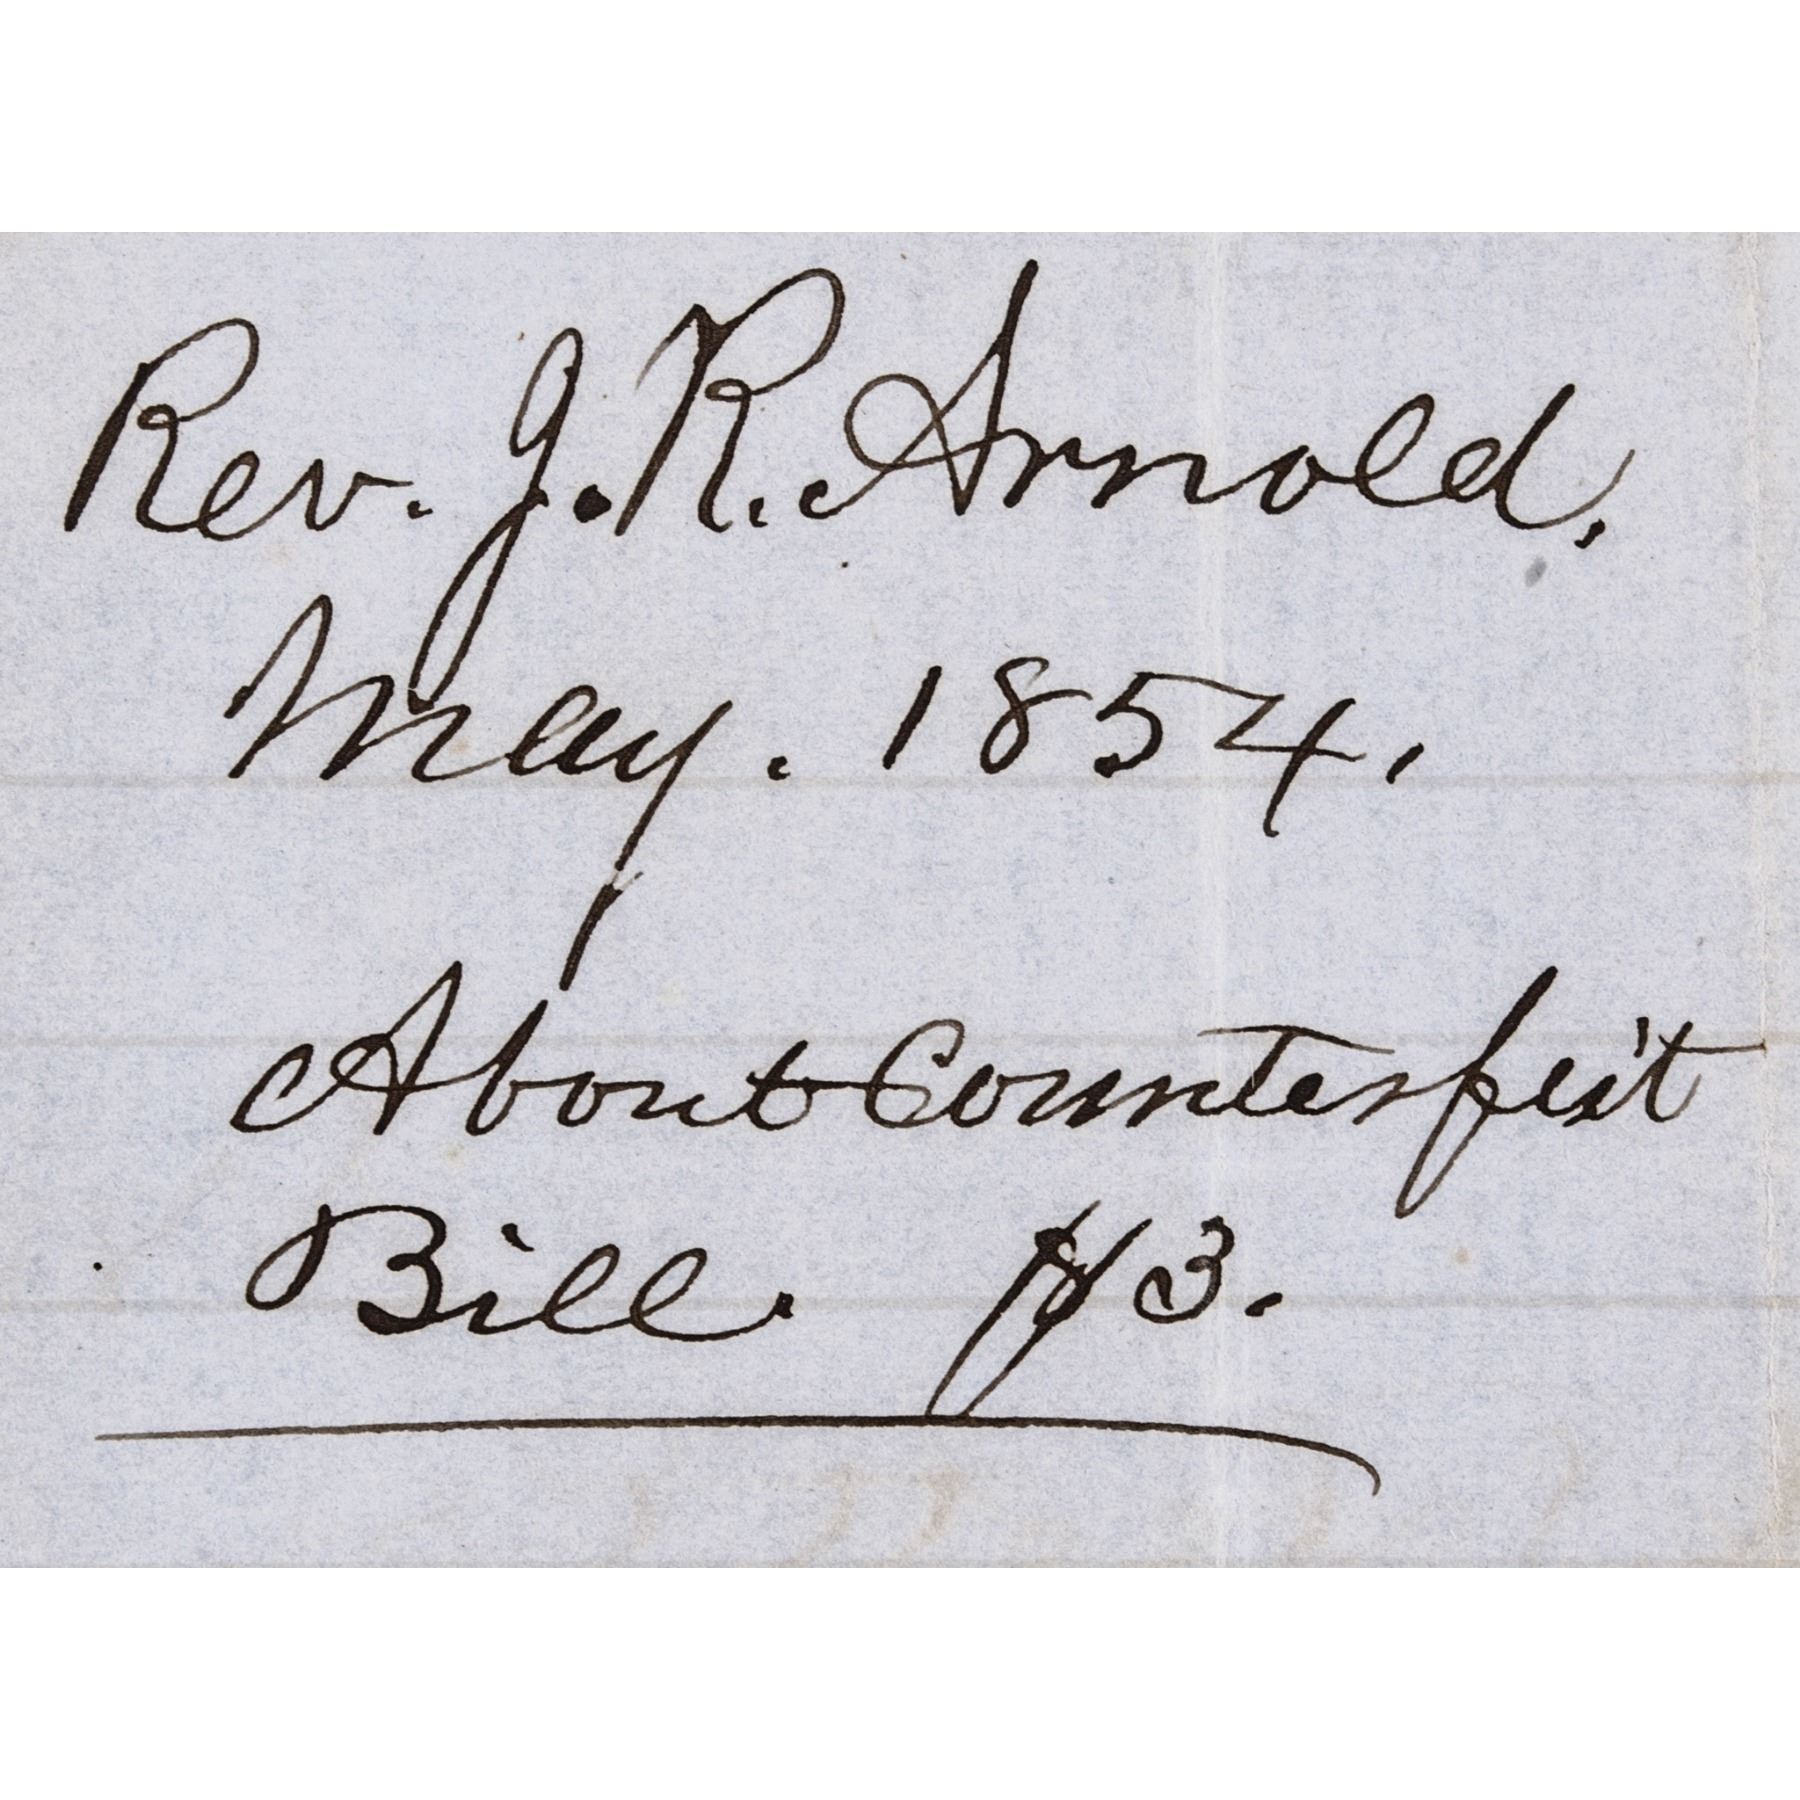 Rev. J. R. Arnold.
May. 1854.
About Counterfeit
Bill. $3.